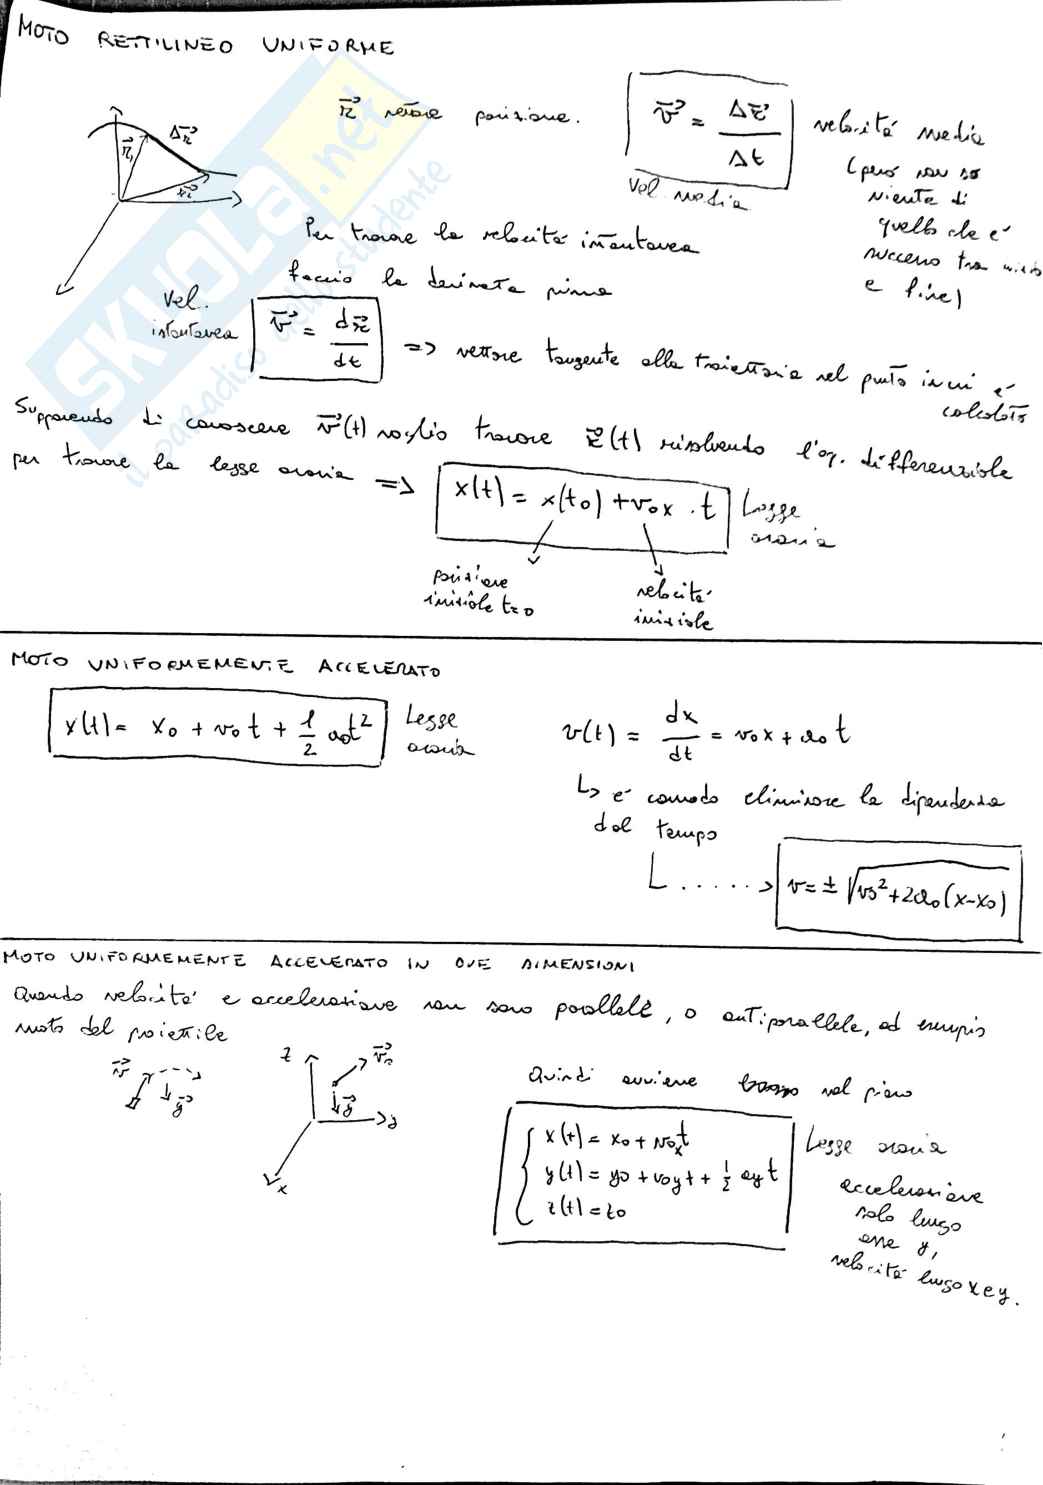 MOTO RETTILINEO UNIFORME
r⃗ vettore posizione.
v⃗ = Δr⃗ / Δt
Vel. media
velocità media
(però non so
niente di
quello che è
successo tra inizio
e fine)
Δr⃗
r⃗₁
r⃗₂
Per trovare la velocità istantanea
faccio la derivata prima
Vel.
istantanea
v⃗ = dr⃗ / dt
=> vettore tangente alla traiettoria nel punto in cui è
calcolata
Supponendo di conoscere v⃗(t) voglio trovare r⃗(t) risolvendo l'eq. differenziale
per trovare la legge oraria => x(t) = x(t₀) + v₀x · t
Legge
oraria
posizione
iniziale t=0
velocità
iniziale
MOTO UNIFORMEMENTE ACCELERATO
x(t) = x₀ + v₀t + 1/2 a₀t²
Legge
oraria
v(t) = dx/dt = v₀x + a₀t
↳ è comodo eliminare la dipendenza
dal tempo
v = ± √(v₀² + 2a₀(x-x₀))
MOTO UNIFORMEMENTE ACCELERATO IN DUE DIMENSIONI
Quando velocità e accelerazione non sono parallele, o antiparallele, ad esempio
moto del proiettile
v⃗
g⃗
z
v⃗₀
g⃗
y
x
Quindi avviene nel piano
x(t) = x₀ + v₀ₓt
y(t) = y₀ + v₀yt + 1/2 ayt
z(t) = z₀
Legge oraria
accelerazione
solo lungo
asse y,
velocità lungo x e y.
SKUOLA.net
il paradiso dello studente